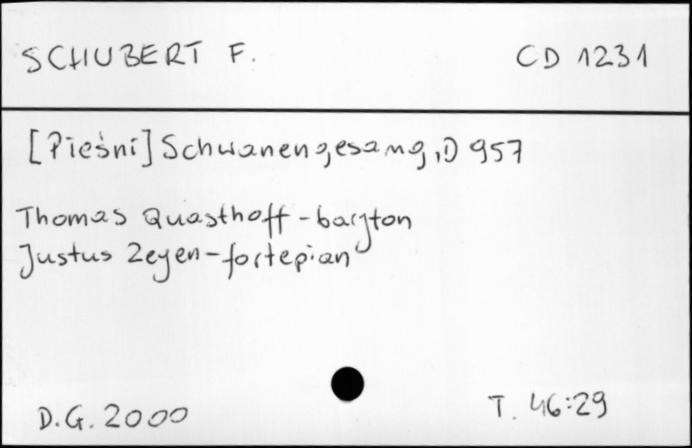 SCHUBERT F. CD 1231
[Pieśni] Schwanengesang, D 957
Thomas Quasthoff - baryton
Justus Zeyen - fortepian
D.G. 2000 T. 46:29